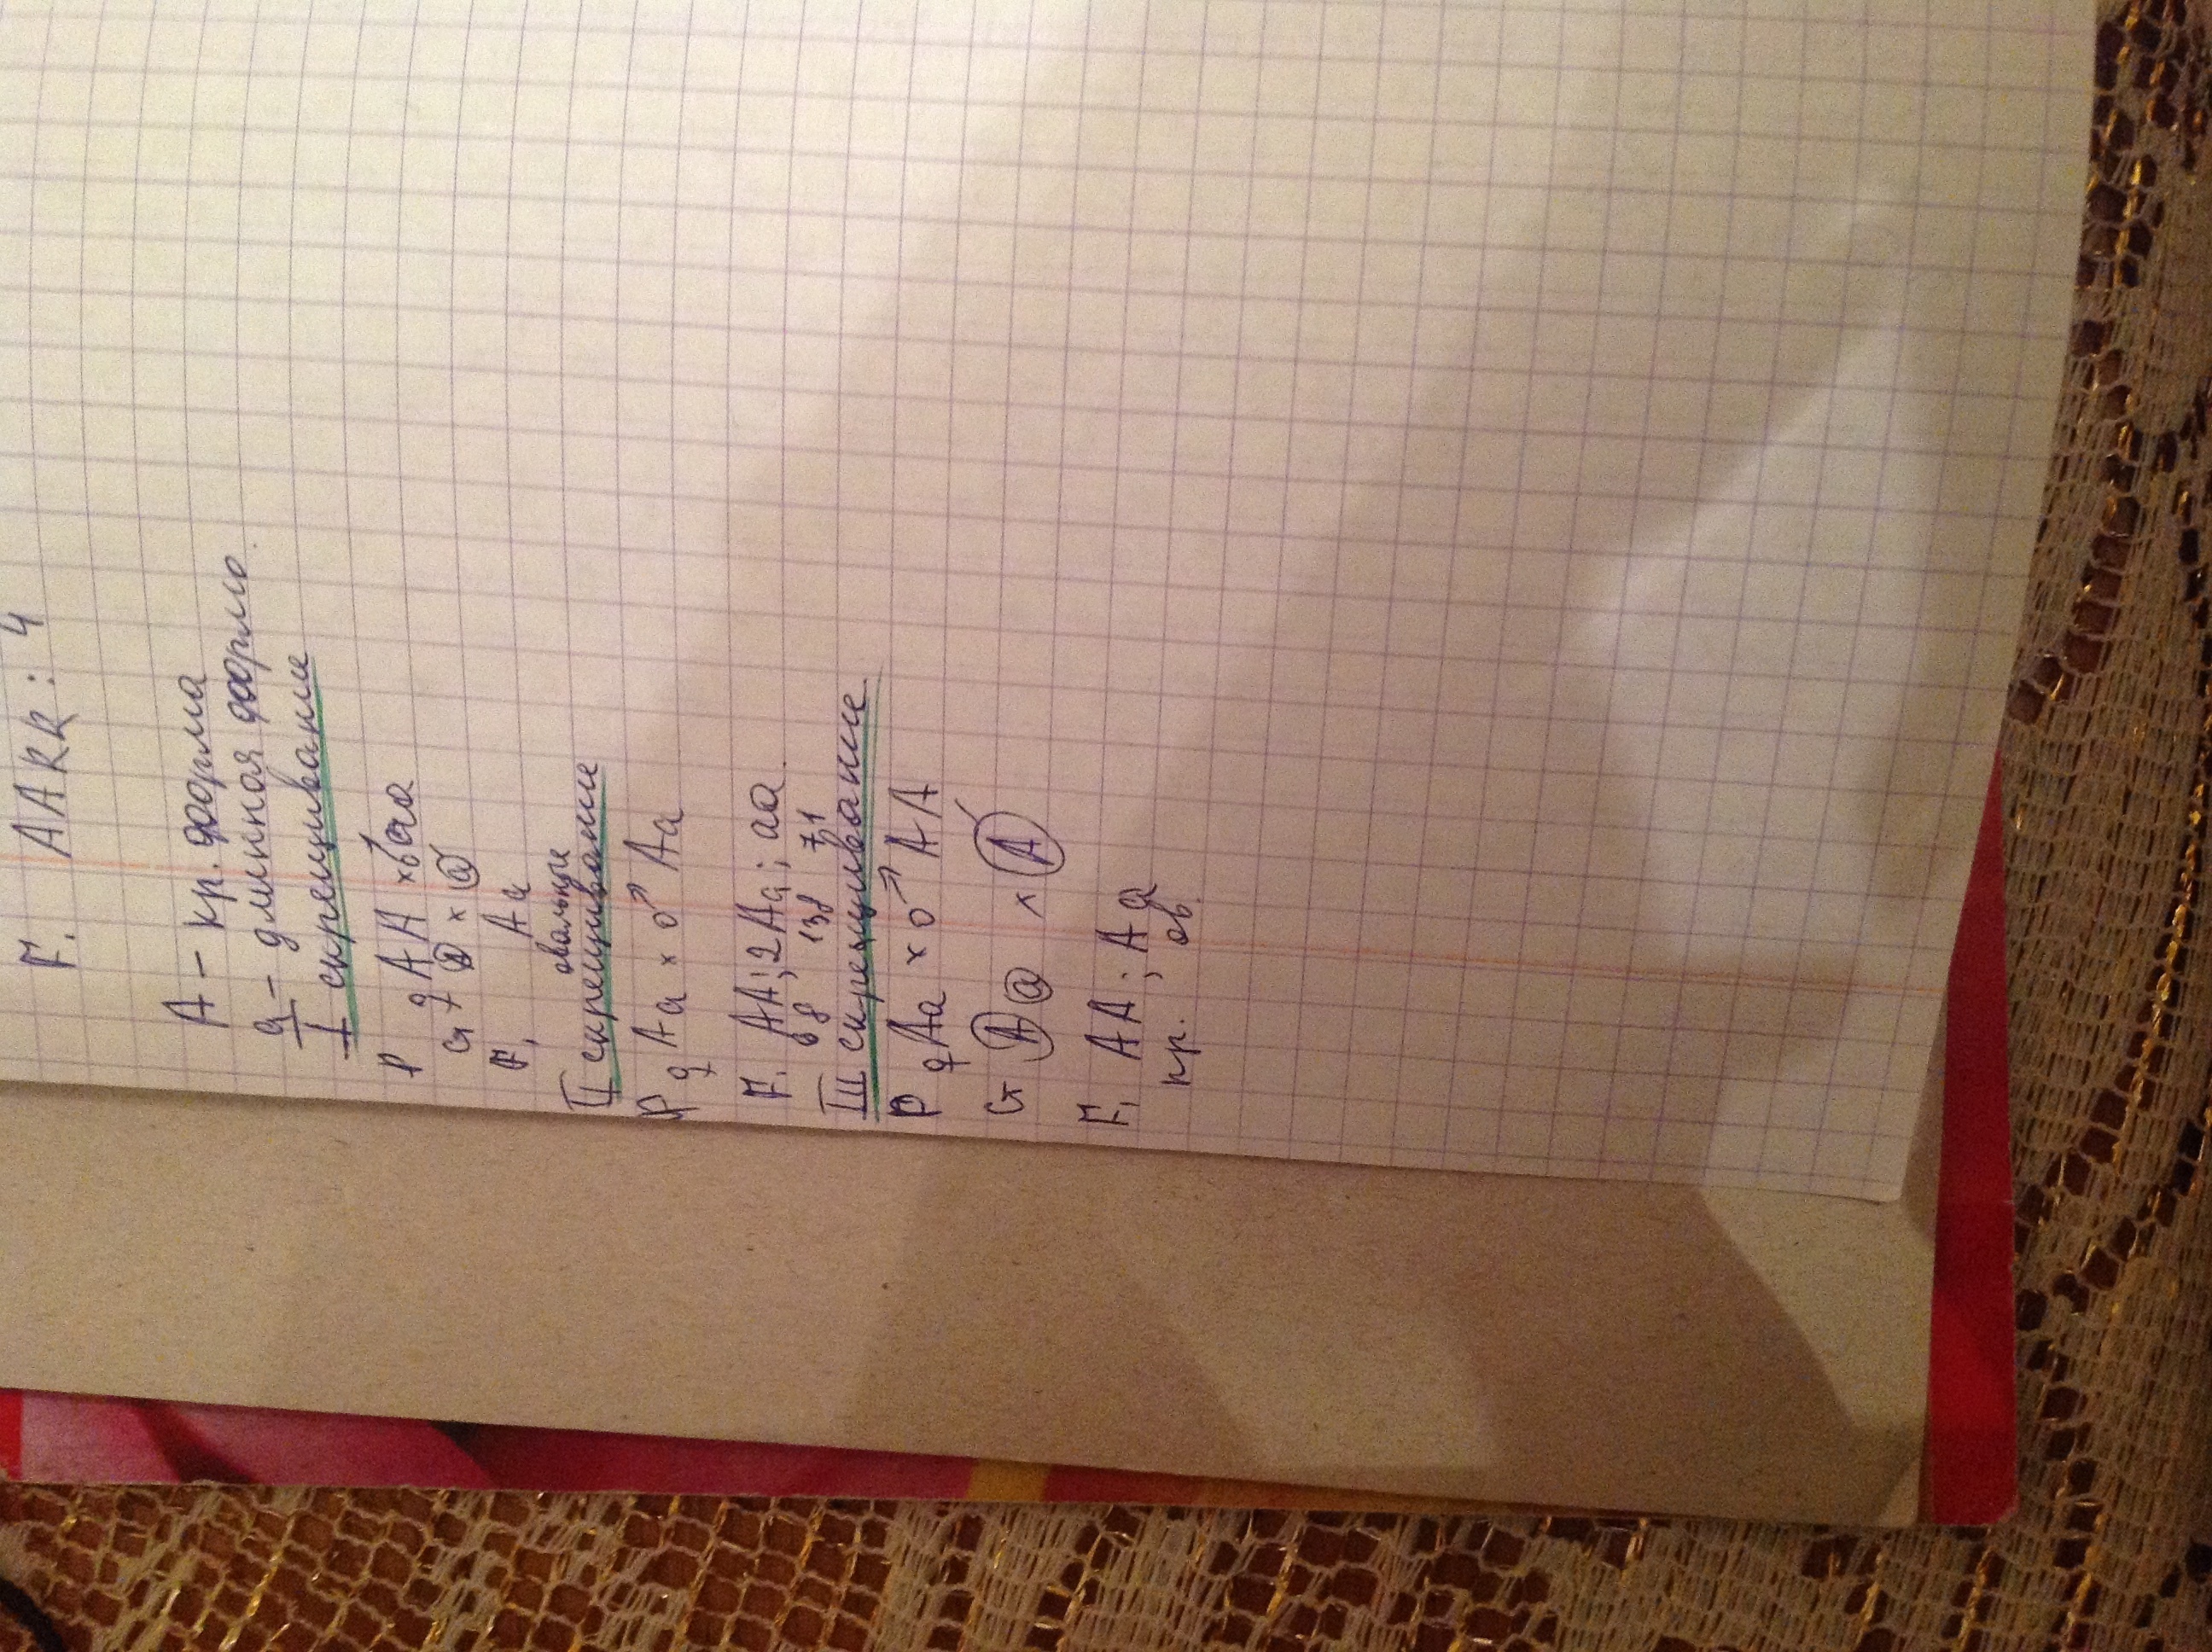 F₁ AARR : 4
А – кр. форма
а – длинная форма
I скрещивание
P ♀ AA × ♂ aa
G A × a
F₁ Aa
овальные
II скрещивание
P ♀ Aa × ♂ Aa
F₁ AA; 2Aa; aa
68 138 71
III скрещивание
P ♀ Aa × ♂ AA
G A a × A
F₁ AA ; Aa
кр. ов.